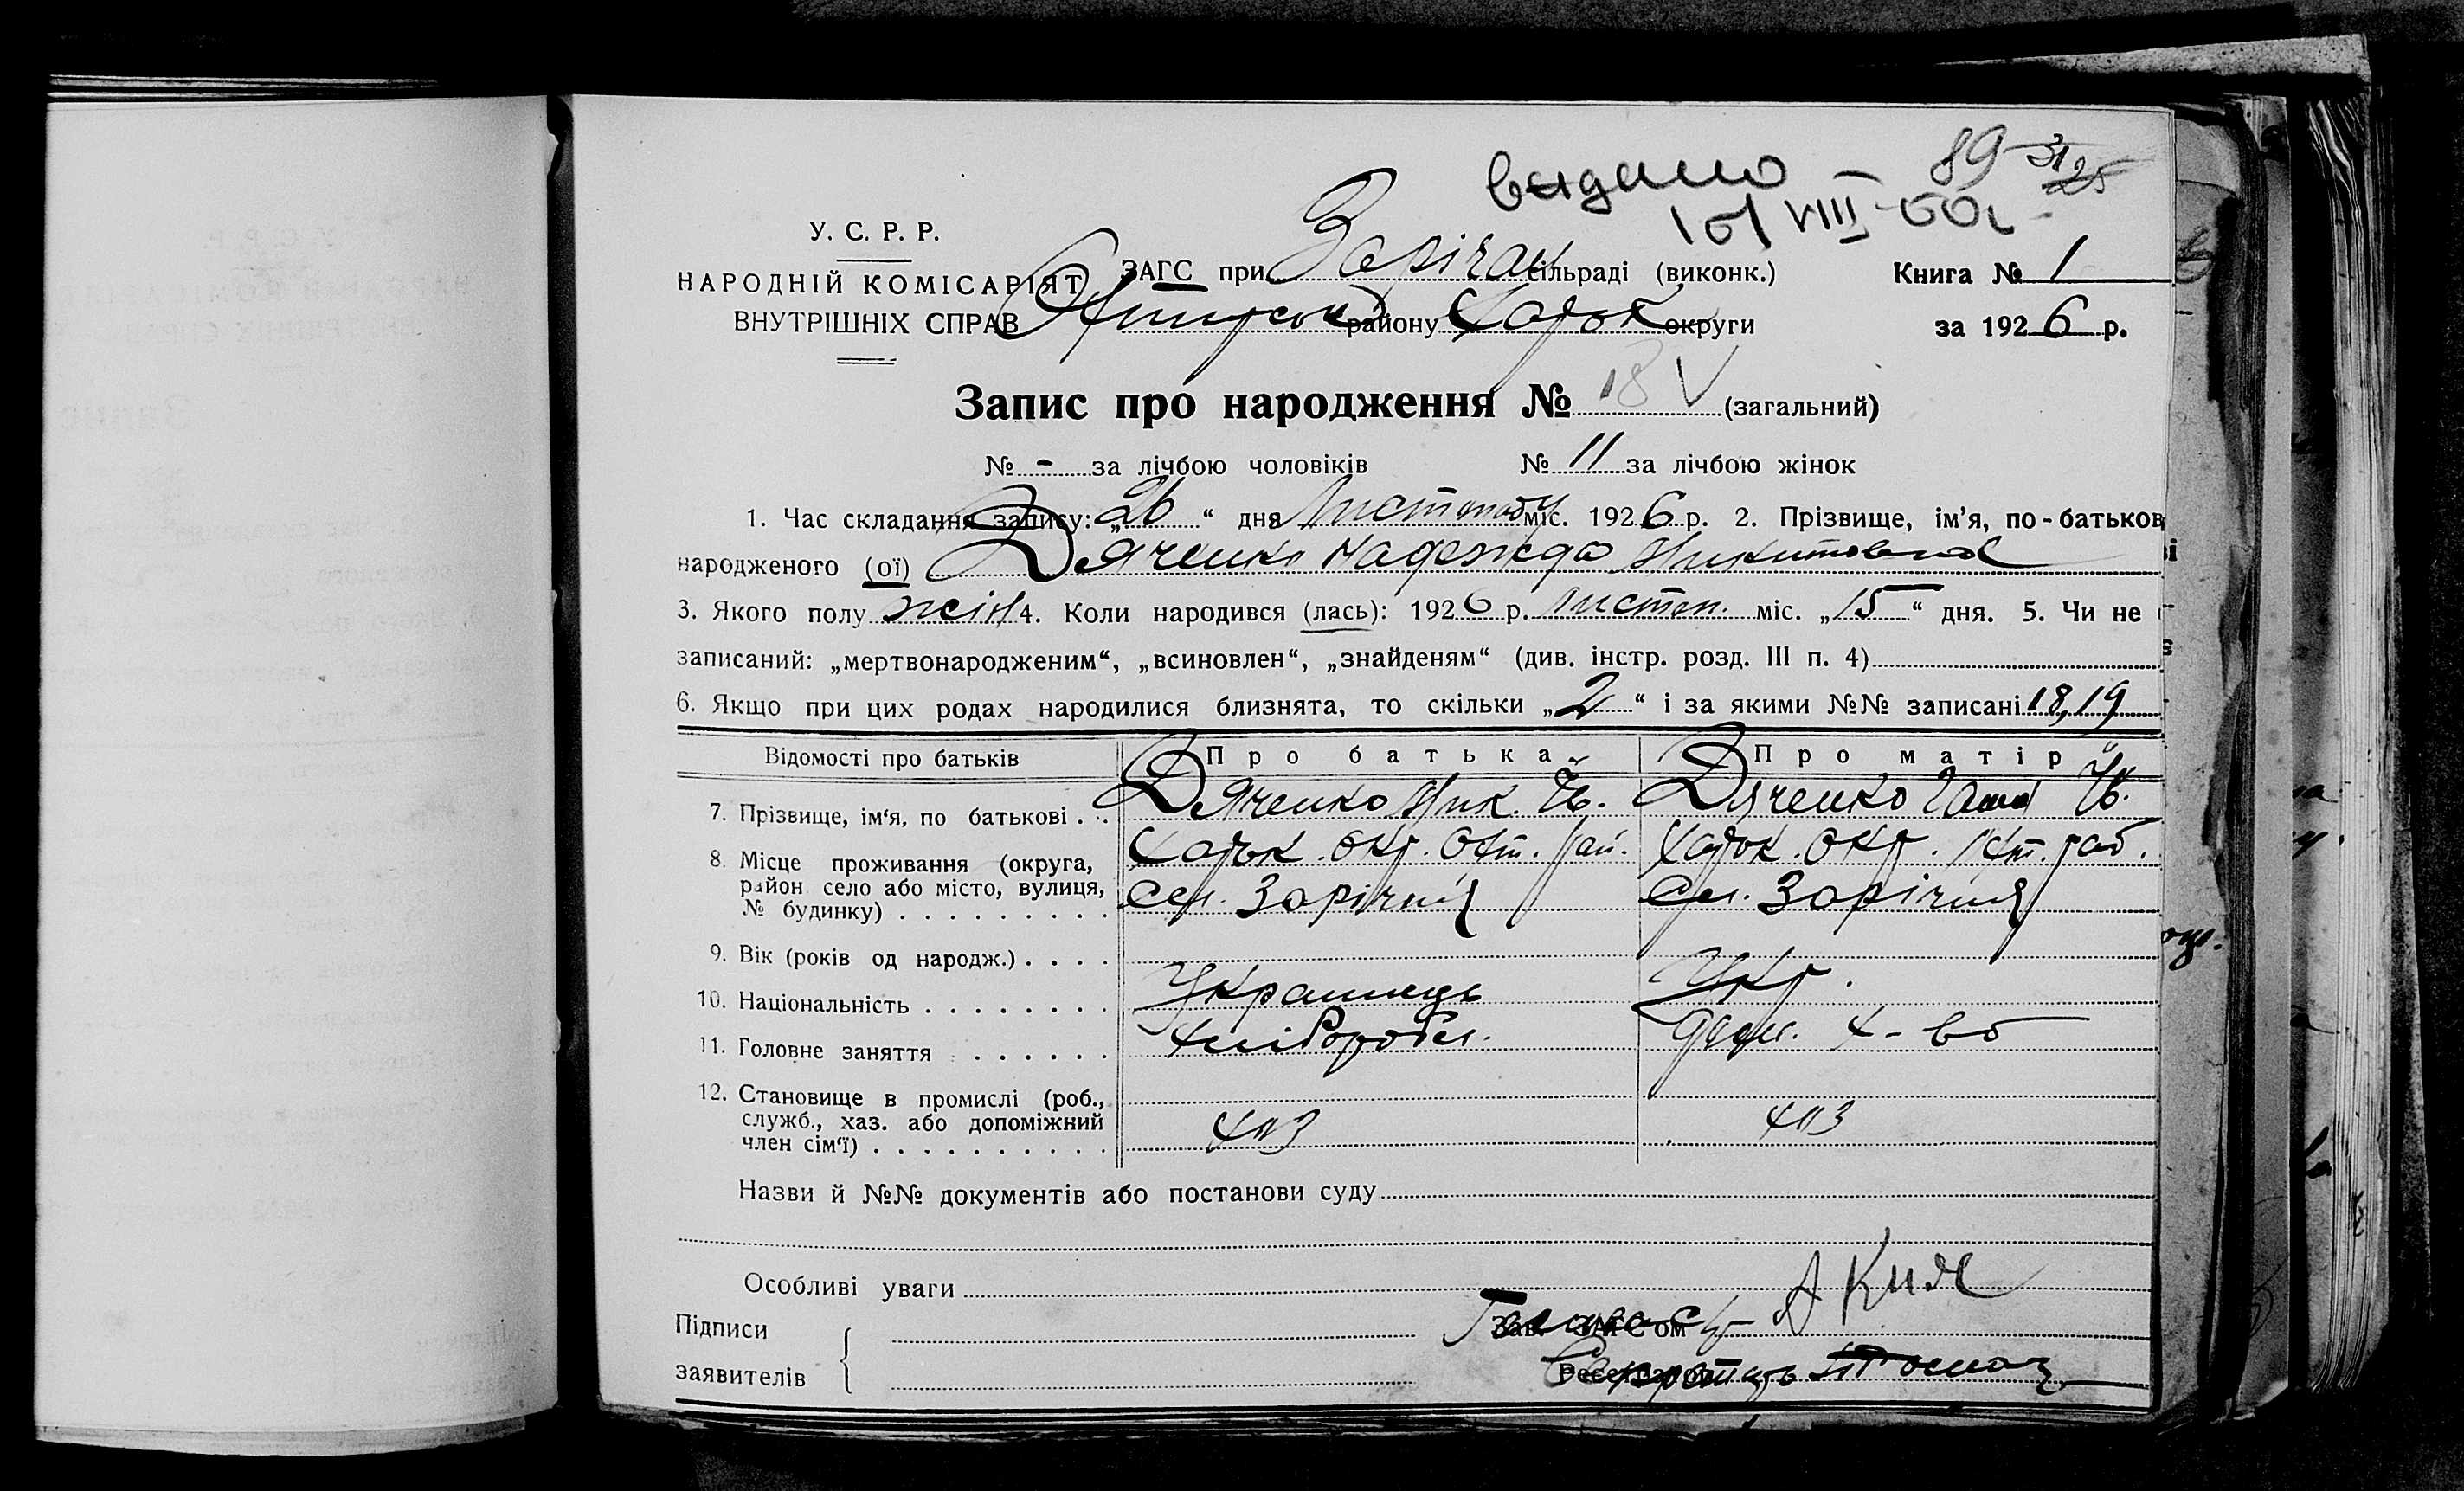 видано — 89 31
25
15/VIII-50г.
У. С. Р. Р.
НАРОДНІЙ КОМІСАРІЯТ
ВНУТРІШНІХ СПРАВ
ЗАГС при Зарічан сільраді (виконк.)
району Харьк округи
Книга № 1
за 1926 р.
Запис про народження № 18 V (загальний)
№ - за лічбою чоловіків № 11 за лічбою жінок
1. Час складання запису: „26“ дня Листопаду міс. 1926 р. 2. Прізвище, ім’я, по-батьков
народженого (ої) Дяченко Надежда Микитовна
3. Якого полу жін 4. Коли народився (лась): 1926 р. листоп. міс. „15“ дня. 5. Чи не
записаний: „мертвонародженим“, „всиновлен“, „знайденям“ (див. інстр. розд. III п. 4)
6. Якщо при цих родах народилися близнята, то скільки „2“ і за якими №№ записані 18, 19
Відомості про батьків Про батька Про матір
7. Прізвище, ім‘я, по батькові . . Дяченко Мик. Дяченко
8. Місце проживання (округа, Харьк. окр. рай. Харьк. окр. рай.
район село або місто, вулиця, Сел. Зарічня Сел. Зарічня
№ будинку) . . . . . . . . .
9. Вік (років од народж.) . . . .
10. Національність . . . . . . . . Украинець Укр.
11. Головне заняття . . . . . . Хлібороб. дом. х-во
12. Становище в промислі (роб.,
служб., хаз. або допоміжний
член сім‘ї) . . . . . . . . . . ЧПЗ ЧПЗ
Назви й №№ документів або постанови суду
Особливі уваги
Підписи
заявителів
Зав. ЗАГС‘ом Голова с/р
Реєстратор Секретарь